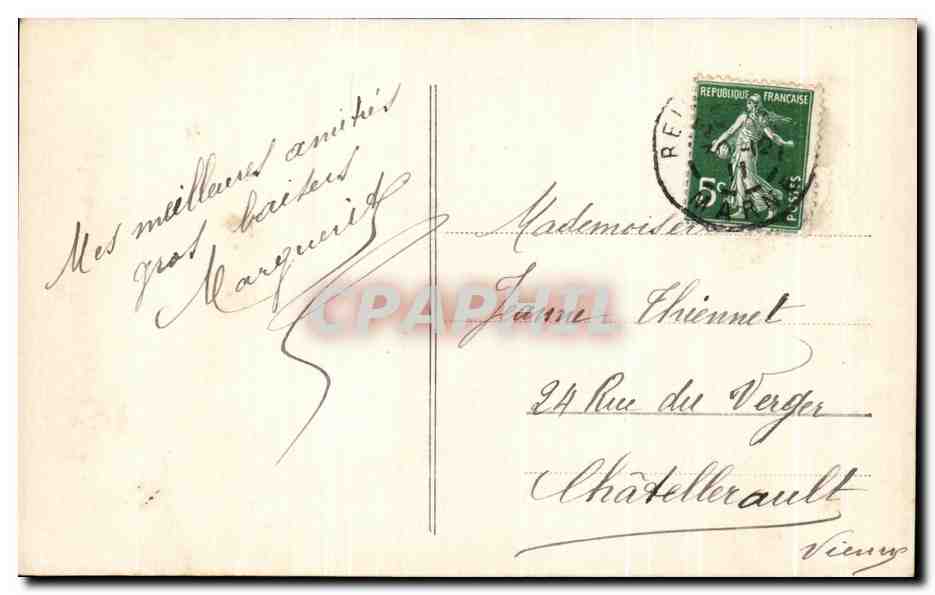 Mes meilleures amitiés
gros baisers
Marguerite
REPUBLIQUE FRANÇAISE
5c
POSTES
MARNE
Mademoiselle
Jeanne Thiennet
24 Rue du Verger
Châtellerault
Vienne
CPAPHIL